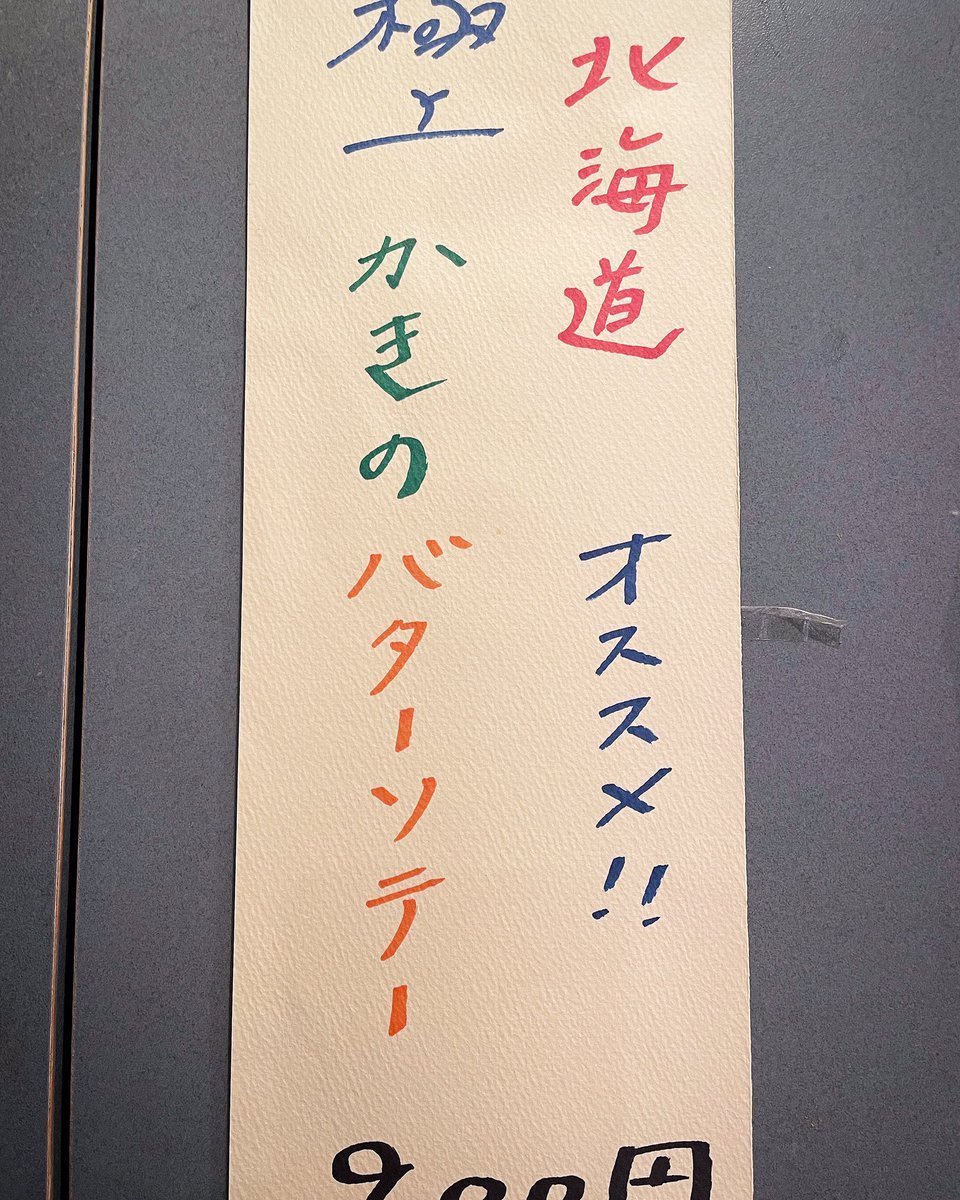 北海道 オススメ!!
極上 かきのバターソテー
900円